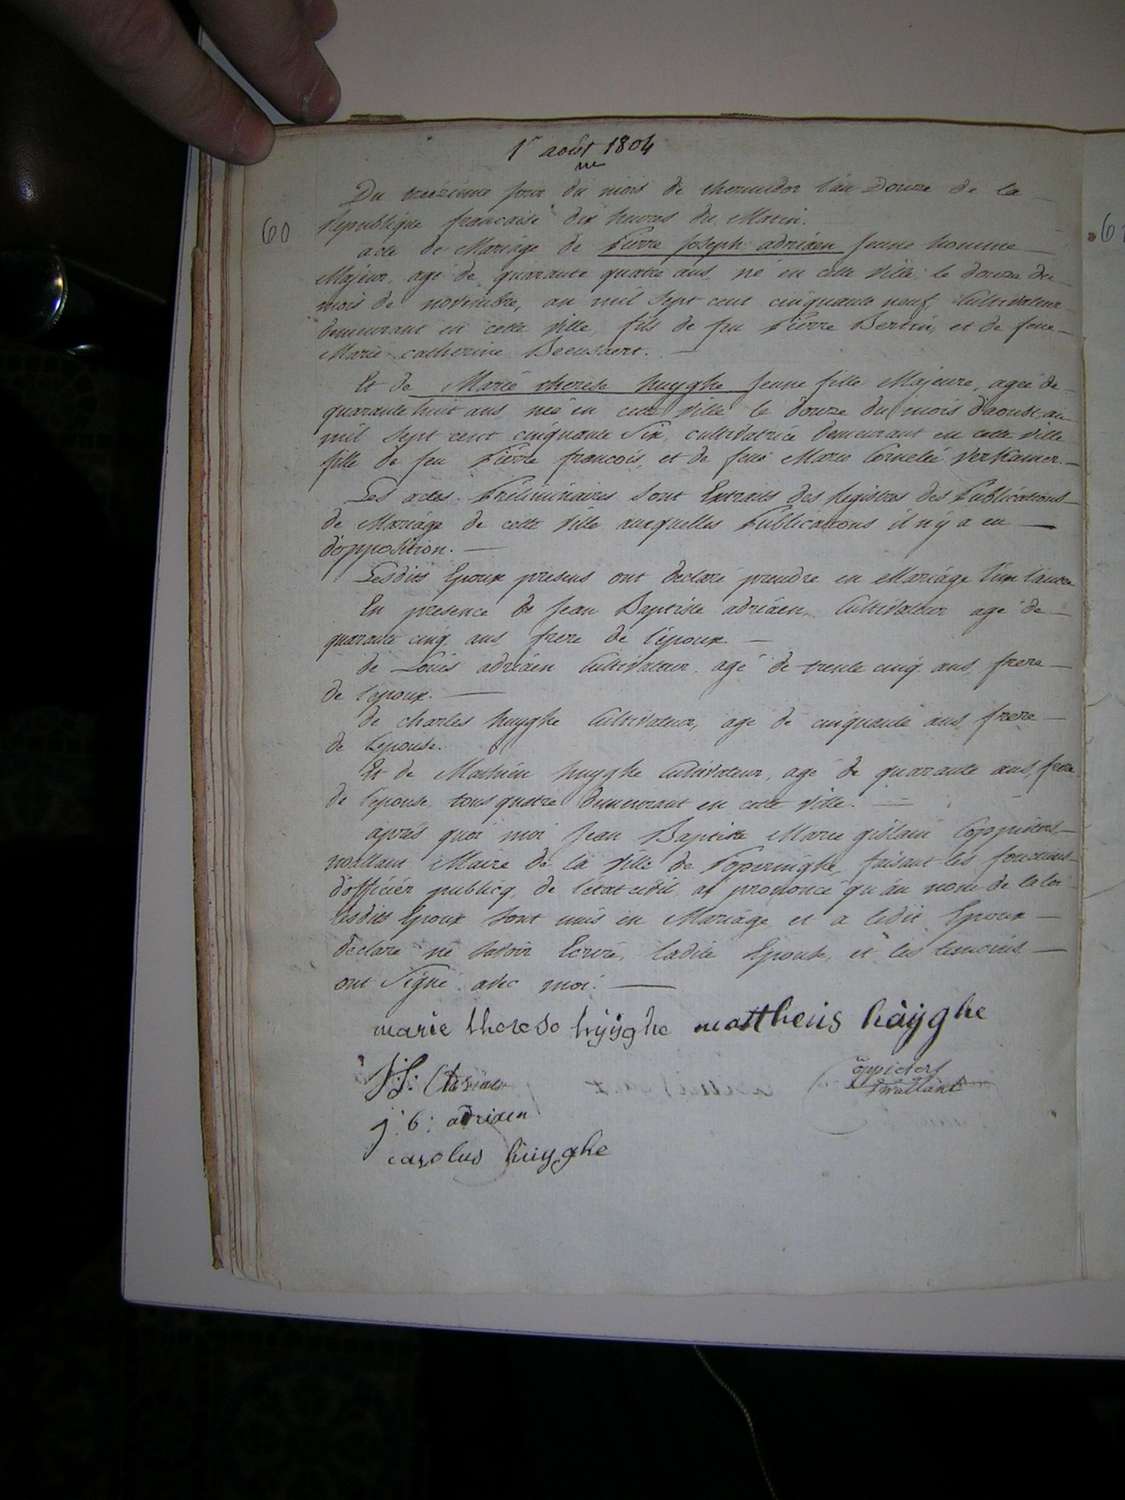 1r août 1804
me
Du treizieme jour du mois de thermidor l'an Douze de la
60
republique francaise dix heures du Matin.
acte de Mariage de Pierre Joseph adriaen Jeune homme
Majeur, agé de quarante quatre ans, né en cette ville le douze du
mois de novembre, an mil sept cent cinquante neuf, Cultivateur
demeurant en cette ville, fils de feu Pierre Bertin, et de feue
Marie catherine Beeusaert.
Et de Marie therese huyghe Jeune fille Majeure, agée de
quarante huit ans, née en cette ville le douze du mois d'aoust an
mil sept cent cinquante Six, cultivatrice demeurant en cette ville
fille de feu Pierre francois, et de feue Marie Cornelie
Les actes Préliminaires sont Extraits des Registres des Publications
de Mariage de cette ville auxquelles Publications il n'y a eu
d'opposition.
Lesdits Epoux presens ont declaré prendre en Mariage l'un l'autre
En presence de Jean Baptiste adriaen Cultivateur agé de
quarante cinq ans frere de l'époux
de Louis adriaen Cultivateur agé de trente cinq ans, frere
de l'époux.
de charles huyghe Cultivateur, agé de cinquante ans, frere
de l'épouse.
Et de Mathieu huyghe Cultivateur, agé de quarante ans, frere
de l'épouse, tous quatre demeurant en cette ville.
après quoi moi Jean Baptiste Marie gislain Coppieters
wallant Maire de la ville de Poperinghe, faisant les fonctions
d'officier publicq de l'état civil ai prononcé qu'au nom de la loi
lesdits Epoux sont unis en Mariage et a ledit Epoux
declaré ne savoir Ecrire, ladite Epouse, et les temoins
ont Signé avec moi.
marie therese hÿÿghe mattheus håÿghe
oppieters
twallant
j: b: adriaen
carolus huyghe